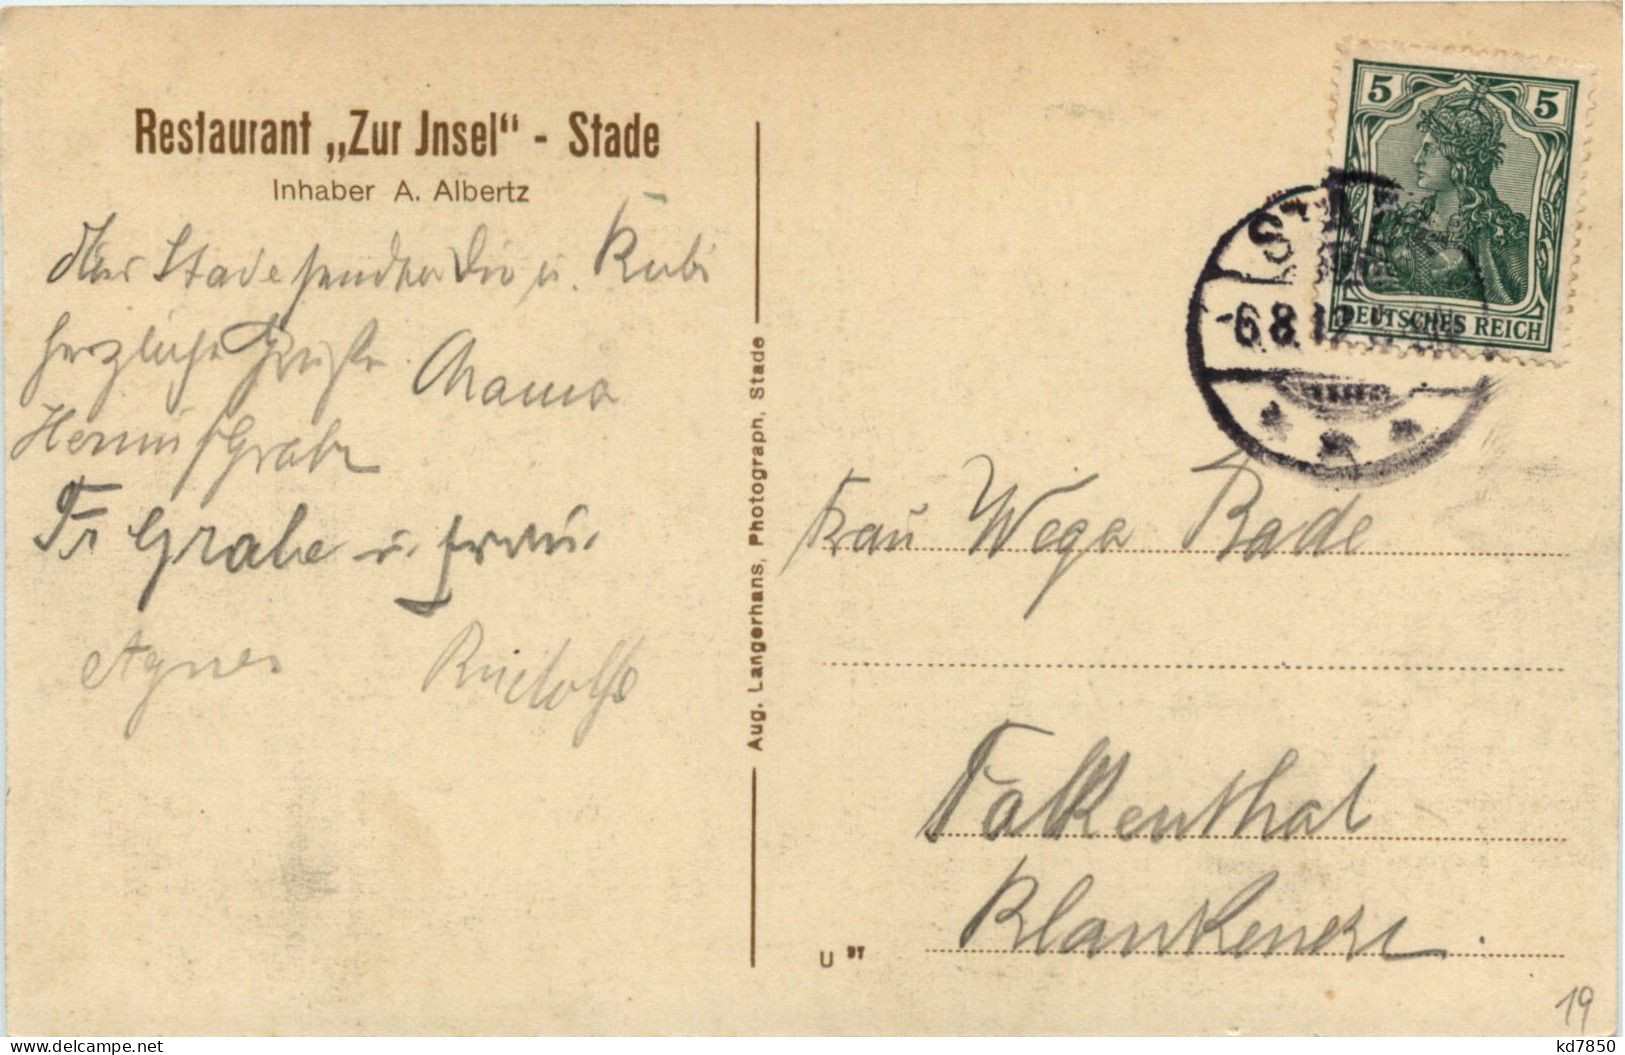 Restaurant „Zur Jnsel“ - Stade
Inhaber A. Albertz
Stade senden Dir u. Rubi
herzliche Grüße. Mama
Grabe
Fr Grabe u. Frau.
Agnes Rudolf
Aug. Langerhans, Photograph, Stade
5 5
DEUTSCHES REICH
STADE
-6.8.12
Frau Wega Rade
Falkenthal
Blankenese.
U 97
19
kd7850